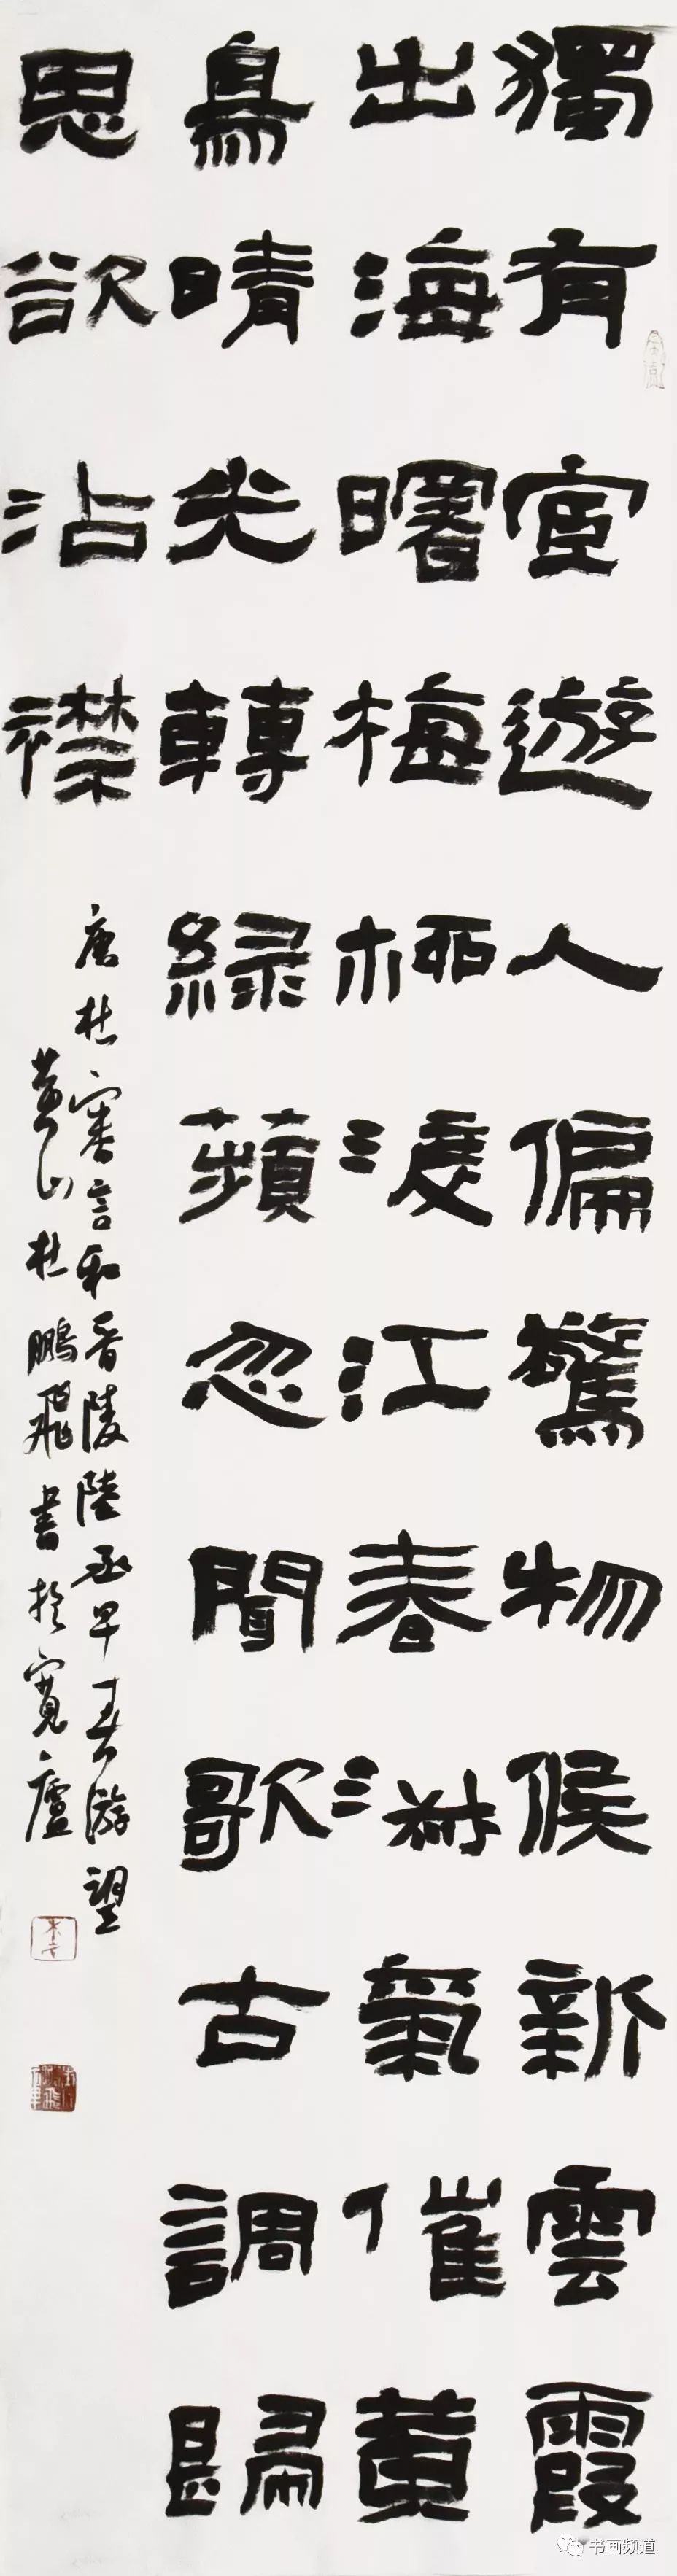 獨有宦遊人偏驚物候新雲霞
出海曙梅柳渡江春淑氣催黃
鳥晴光轉綠蘋忽聞歌古調歸
思欲沾襟
唐杜審言和晉陵陸丞早春游望
黃山杜鵬飛書於寬廬
书画频道